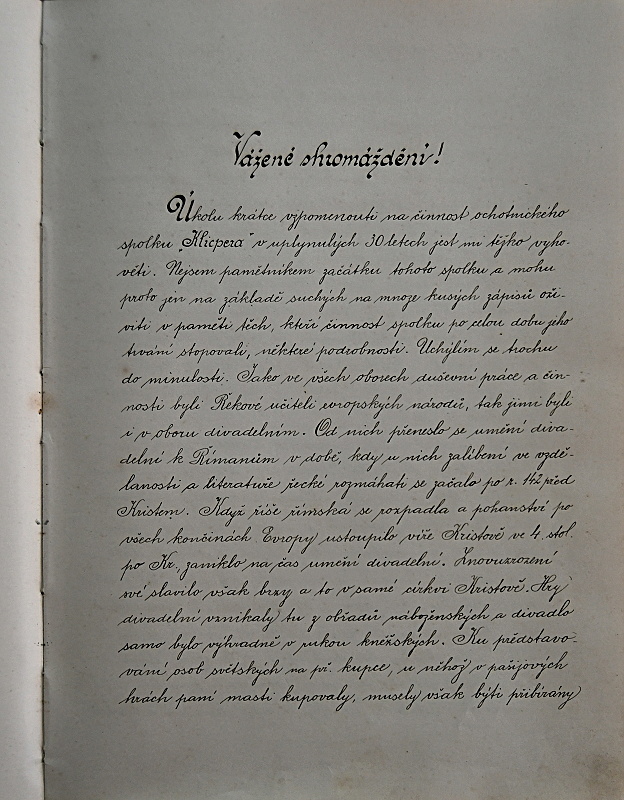 Vážené shromáždění!
Úkolu krátce vzpomenouti na činnost ochotnického
spolku „Klicpera" v uplynulých 30 letech jest mi těžko vyho-
věti. Nejsem pamětníkem začátku tohoto spolku a mohu
proto jen na základě suchých na mnoze kusých zápisů oži-
viti v paměti těch, kteří činnost spolku po celou dobu jeho
trvání stopovali, některé podrobnosti. Uchýlím se trochu
do minulosti. Jako ve všech oborech duševní práce a čin-
nosti byli Řekové učiteli evropských národů, tak jimi byli
i v oboru divadelním. Od nich přeneslo se umění diva-
delní k Římanům v době, kdy u nich zalíbení ve vzdě-
lanosti a literatuře řecké rozmáhati se začalo po r. 142 před
Kristem. Když říše římská se rozpadla a pohanství po
všech končinách Evropy ustoupilo víře Kristově ve 4. stol.
po Kr. zaniklo na čas umění divadelní. Znovuzrození
své slavilo však brzy a to v samé církvi Kristově. Hry
divadelní vznikaly tu z obřadů náboženských a divadlo
samo bylo výhradně v rukou kněžských. Ku představo-
vání osob světských na př. kupce, u něhož v pašijových
hrách paní masti kupovaly, musely však býti přibírány